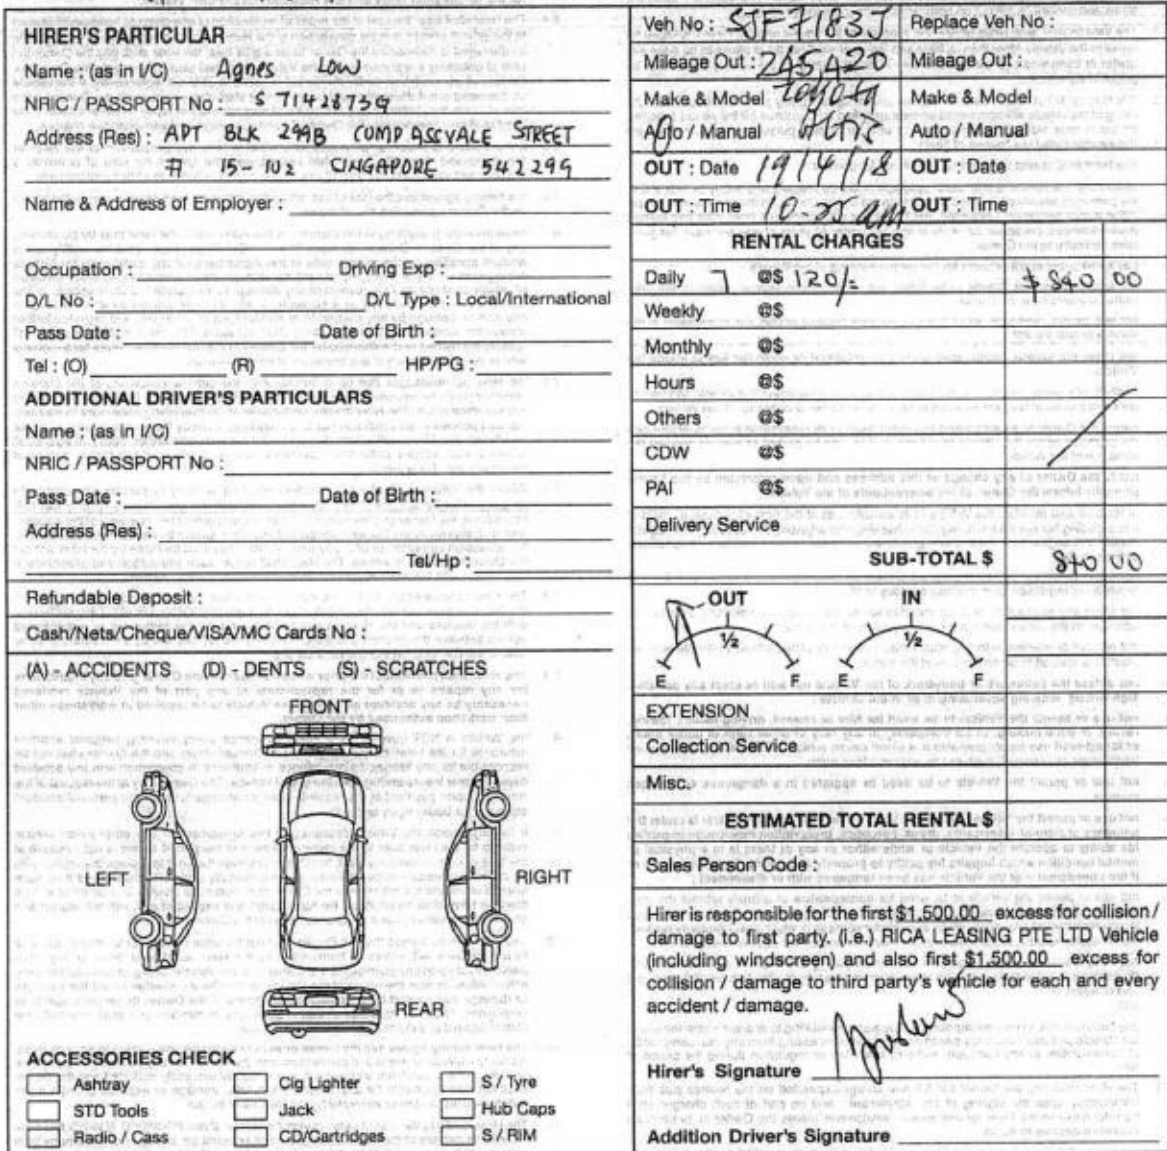 HIRER'S PARTICULAR
Name : (as in I/C) Agnes Low
NRIC / PASSPORT No : S 7142873G
Address (Res) : APT BLK 299B COMPASSVALE STREET
# 15-102 SINGAPORE 542299
Name & Address of Employer :
Occupation : Driving Exp :
D/L No : D/L Type : Local/International
Pass Date : Date of Birth :
Tel : (O) (R) HP/PG :
ADDITIONAL DRIVER'S PARTICULARS
Name : (as in I/C)
NRIC / PASSPORT No :
Pass Date : Date of Birth :
Address (Res) :
Tel/Hp :
Refundable Deposit :
Cash/Nets/Cheque/VISA/MC Cards No :
(A) - ACCIDENTS (D) - DENTS (S) - SCRATCHES
FRONT
LEFT
RIGHT
REAR
ACCESSORIES CHECK
Ashtray Cig Lighter S / Tyre
STD Tools Jack Hub Caps
Radio / Cass CD/Cartridges S / RIM
Veh No : SJF7183J Replace Veh No :
Mileage Out : 245,420 Mileage Out :
Make & Model Toyota Make & Model
Auto / Manual Altis Auto / Manual
OUT : Date 19/4/18 OUT : Date
OUT : Time 10-25 am OUT : Time
RENTAL CHARGES
Daily 7 @$ 120/= $ 840 00
Weekly @$
Monthly @$
Hours @$
Others @$
CDW @$
PAI @$
Delivery Service
SUB-TOTAL $ 840 00
OUT IN
½ ½
E F E F
EXTENSION
Collection Service
Misc.
ESTIMATED TOTAL RENTAL $
Sales Person Code :
Hirer is responsible for the first $1,500.00 excess for collision /
damage to first party. (i.e.) RICA LEASING PTE LTD Vehicle
(including windscreen) and also first $1,500.00 excess for
collision / damage to third party's vehicle for each and every
accident / damage.
Hirer's Signature
Addition Driver's Signature